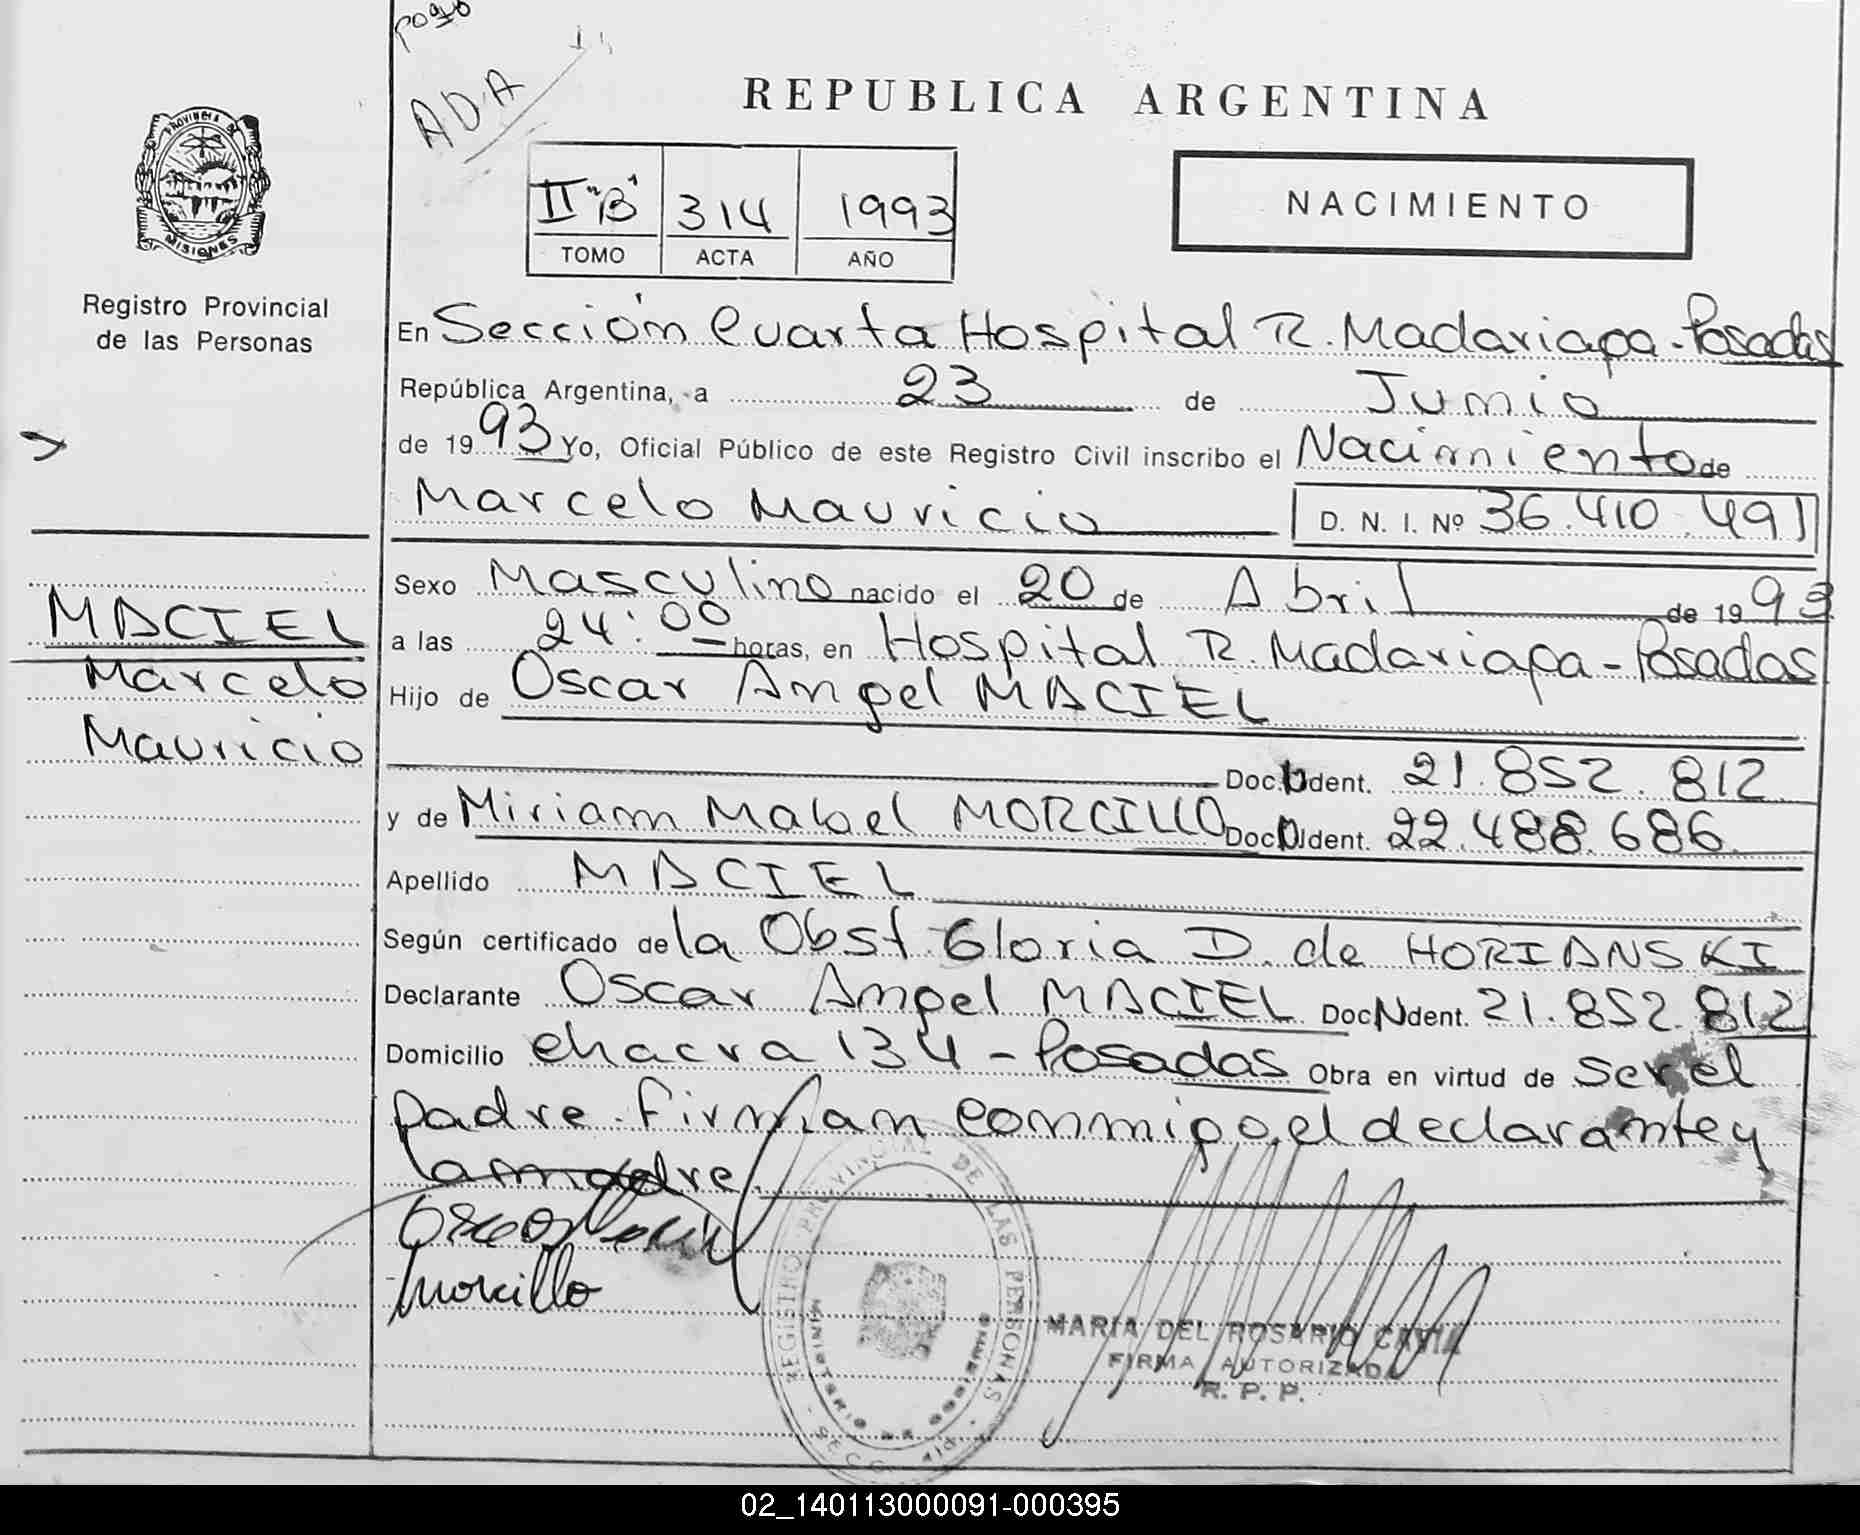 pogo
ADA
PROVINCIA DE
MISIONES
Registro Provincial
de las Personas
REPUBLICA ARGENTINA
II "B" 314 1993
TOMO ACTA AÑO
NACIMIENTO
En Sección Cuarta Hospital R. Madariaga - Posadas
República Argentina, a 23 de Junio
de 1993 Yo, Oficial Público de este Registro Civil inscribo el Nacimiento de
Marcelo Mauricio D. N. I. Nº 36.410.491
Sexo Masculino nacido el 20 de Abril de 1993
a las 24:00 horas, en Hospital R. Madariaga - Posadas
Hijo de Oscar Angel MACIEL
Doc. Ident. 21.852.812
y de Miriam Mabel MORCILLO Doc. Ident. 22.488.686
Apellido MACIEL
Según certificado de la Obst. Gloria D. de HORIANSKI
Declarante Oscar Angel MACIEL Doc. Ident. 21.852.812
Domicilio chacra 134 - Posadas Obra en virtud de ser el
padre. Firman conmigo, el declarante y
la madre.
MACIEL
Marcelo
Mauricio
Morcillo
REGISTRO PROVINCIAL DE LAS PERSONAS
MINISTERIO
MARIA DEL ROSARIO CAVIA
FIRMA AUTORIZADA
R. P. P.
02_140113000091-000395